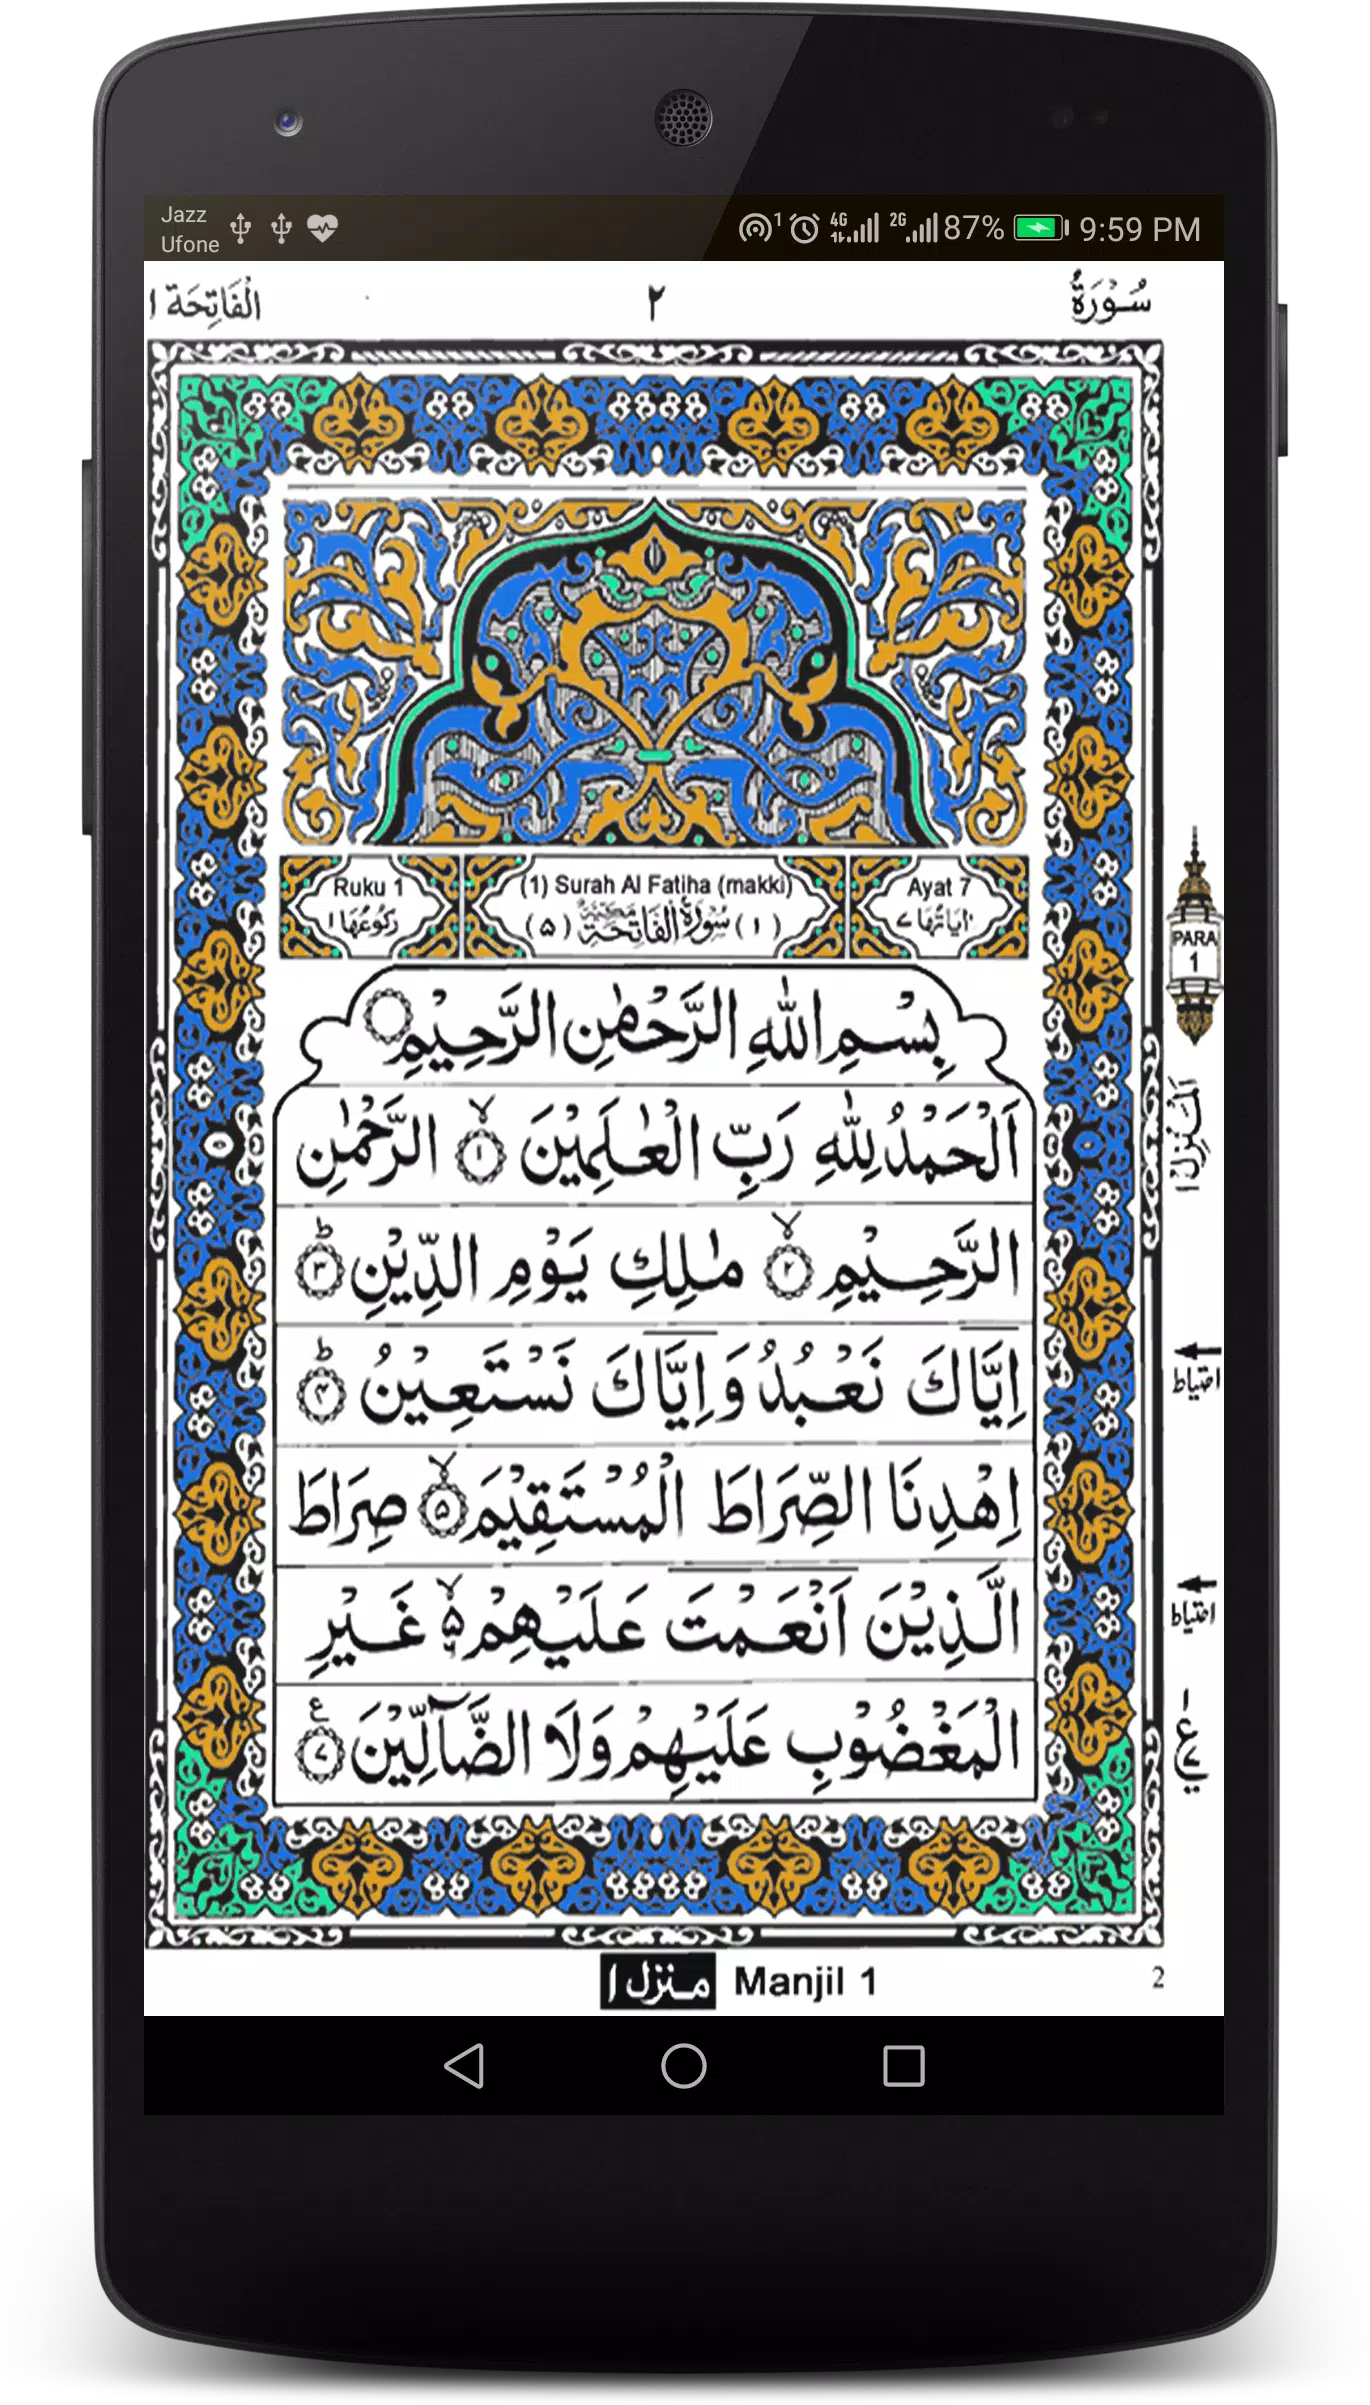 Jazz
Ufone
1 4G 2G 87% 9:59 PM
سُوْرَةُ ٢ الْفَاتِحَة ١
Ruku 1 (1) Surah Al Fatiha (makki) Ayat 7
اٰيَاتُهَا ٧ (١) سُوْرَةُ الْفَاتِحَةِ مَكِّيَّةٌ (۵) رُكُوْعُهَا ١
PARA
1
بِسْمِ اللّٰهِ الرَّحْمٰنِ الرَّحِيْمِ
اَلْحَمْدُ لِلّٰهِ رَبِّ الْعٰلَمِيْنَ ۙ﴿١﴾ الرَّحْمٰنِ
الرَّحِيْمِ ۙ﴿٢﴾ مٰلِكِ يَوْمِ الدِّيْنِ ؕ﴿٣﴾
اِيَّاكَ نَعْبُدُ وَ اِيَّاكَ نَسْتَعِيْنُ ؕ﴿۴﴾
اِهْدِنَا الصِّرَاطَ الْمُسْتَقِيْمَ ۙ﴿۵﴾ صِرَاطَ
الَّذِيْنَ اَنْعَمْتَ عَلَيْهِمْ ۙ۵ غَيْرِ
الْمَغْضُوْبِ عَلَيْهِمْ وَلَا الضَّآلِّيْنَ ﴿٧﴾ ع
اَلْمَنْزِل ١
احتياط
احتياط
منزل ١ Manjil 1
2